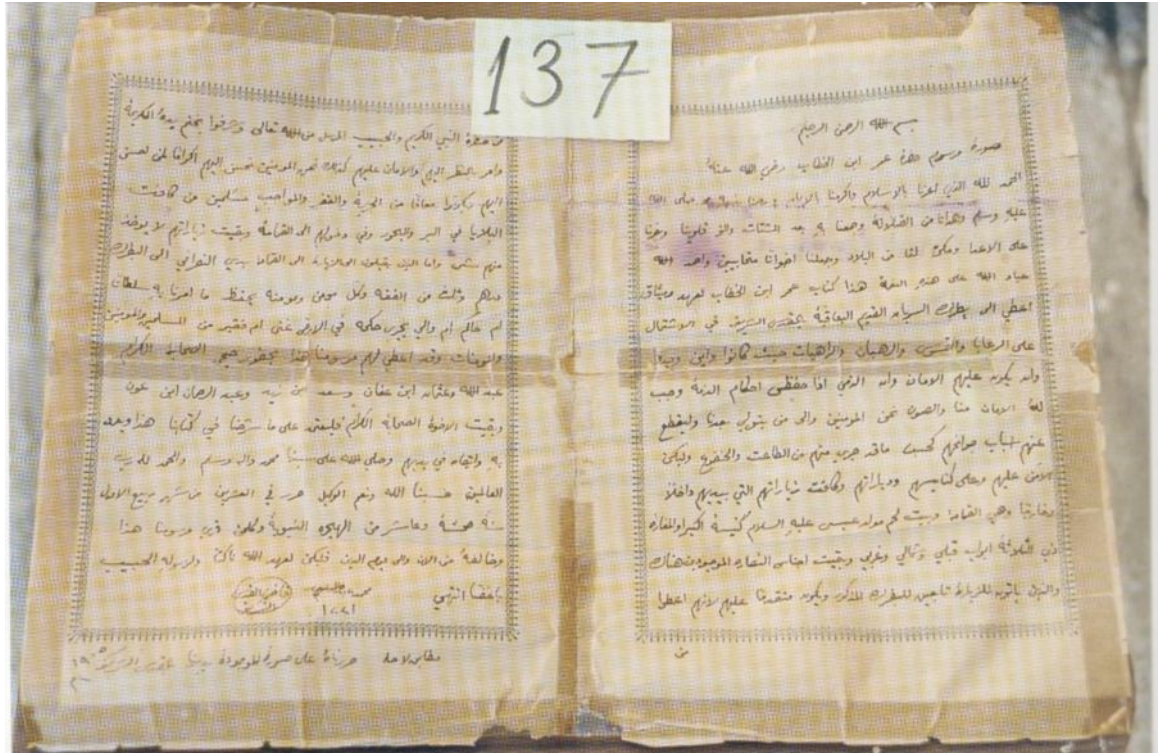 137
بسم الله الرحمن الرحيم
صورة مرسوم حضرة عمر ابن الخطاب رضي الله عنه
الحمد لله الذي اعزنا بالاسلام واكرمنا بالايمان صلى الله
عليه وسلم وهدانا من الضلالة وجمعنا به بعد الشتات والف قلوبنا
على الاعدا ومكن لنا من البلاد وجعلنا اخوانا متحابين واحمد الله
عباد الله على هذه النعمة هذا كتاب عمر ابن الخطاب لعهد وميثاق
اعطي الى بطرك السريان القديم اليعاقبة بالقدس الشريف في الاشتمال
على الرعايا والقسوس والرهبان والراهبات حيث كانوا واين وجدوا
وان يكون عليهم الامان وان الذمي اذا حفظ احكام الذمة وجب
له الامان منا والصون نحن المومنين والى من يتولى بعدنا وليقطع
عنهم اسباب جوانحهم كحسب ماقد جرى منهم من الطاعت والخضوع وليكن
الامان عليهم وعلى كنايسهم ودياراتهم وكافت زياراتهم التي بيديهم داخلا
وخارجا وهي القيامة وبيت لحم مولد عيسى عليه السلام كنيسة الكبرا والمغارة
ذي الثلاثة ابواب قبلي وشمالي وغربي وبقيت اجناس النصاره الموجودين هناك
والذين ياتون للزيارة تابعين للبطرك المذكور ويكون متقدما عليهم لانهم اعطوا
من
من حضرة النبي الكريم والحبيب المرسل من الله تعالى وشرفوا بختم يده الكريمة
وامر بالنظر اليهم والامان عليهم كذلك نحن المومنين نحسن اليهم اكراما لمن احسن
اليهم ويكونوا معافا من الجزية والغفر والمواجب مسلمين من كافت
البلايا في البر والبحور وفي دخولهم الى القيامة وبقيت زياراتهم لا يوخذ
منهم شي واما الذين يقبلون الى الزيارة الى القيامة يودي النصراني الى البطرك
درهم وثلث من الفضة وكل مومن ومومنة يحفظ ما امرنا به سلطان
ام حاكم ام والي يجري حكمه في الارض غني ام فقير من المسلمين والمومنين
والمومنات وقد اعطي لهم مرسومنا هذا بحضور جميع الصحابة الكرام
عبد الله وعثمان ابن عفان وسعد بن زيد وعبد الرحمان ابن عون
وبقيت الاخوة الصحابة الكرام فليعتمد على ما شرحنا في كتابنا هذا ويعمل
به وابقاه في يديهم وصلى الله على سيدنا محمد واله وسلم والحمد لله رب
العالمين حسبنا الله ونعم الوكيل حرر في العشرين من شهر ربيع الاول
سنة خمسة وعاشر من الهجره النبوية وكلمن قري مرسومنا هذا
وخالفه من الان والى يوم الدين فليكن لعهد الله ناكثا ولرسوله الحبيب
باغضا انتهى
على صورة الموجودة بيدنا